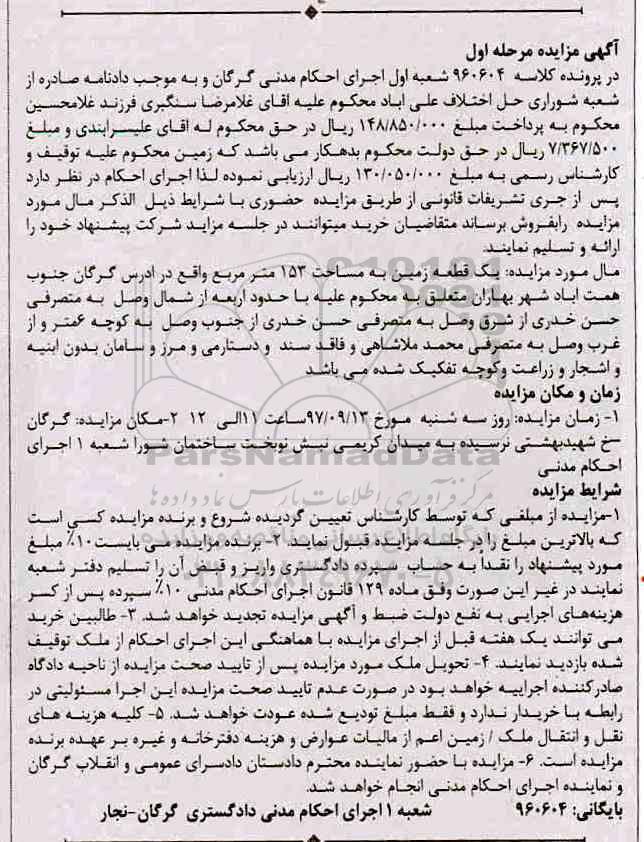 آگهی مزایده مرحله اول
در پرونده کلاسه ۹۶۰۶۰۴ شعبه اول اجرای احکام مدنی گرگان و به موجب دادنامه صادره از
شعبه شورای حل اختلاف علی اباد محکوم علیه اقای غلامرضا سنگبری فرزند غلامحسین
محکوم به پرداخت مبلغ ۱۴۸/۸۵۰/۰۰۰ ریال در حق محکوم له اقای علیسرابندی و مبلغ
۷/۳۶۷/۵۰۰ ریال در حق دولت محکوم بدهکار می باشد که زمین محکوم علیه توقیف و
کارشناس رسمی به مبلغ ۱۳۰/۰۵۰/۰۰۰ ریال ارزیابی نموده لذا اجرای احکام در نظر دارد
پس از جری تشریفات قانونی از طریق مزایده حضوری با شرایط ذیل الذکر مال مورد
مزایده رابفروش برساند متقاضیان خرید میتوانند در جلسه مزاید شرکت پیشنهاد خود را
ارائه و تسلیم نمایند.
مال مورد مزایده: یک قطعه زمین به مساحت ۱۵۳ متر مربع واقع در ادرس گرگان جنوب
همت اباد شهر بهاران متعلق به محکوم علیه با حدود اربعه از شمال وصل به متصرفی
حسن خدری از شرق وصل به متصرفی حسن خدری از جنوب وصل به کوچه ۶متر و از
غرب وصل به متصرفی محمد ملاشاهی و فاقد سند و دستارمی و مرز و سامان بدون ابنیه
و اشجار و زراعت وکوچه تفکیک شده می باشد
زمان و مکان مزایده
۱- زمان مزایده: روز سه شنبه مورخ ۹۷/۰۹/۱۳ساعت ۱۱الی ۱۲ ۲-مکان مزایده: گرگان
–خ شهیدبهشتی نرسیده به میدان کریمی نبش نوبخت ساختمان شورا شعبه ۱ اجرای
احکام مدنی
ParsNamadData
مرکز فرآوری اطلاعات پارس نماد داده ها
شرایط مزایده
۱-مزایده از مبلغی که توسط کارشناس تعیین گردیده شروع و برنده مزایده کسی است
که بالاترین مبلغ را در جلسه مزایده قبول نماید. ۲- برنده مزایده می بایست۱۰٪ مبلغ
مورد پیشنهاد را نقدا به حساب سپرده دادگستری واریز و قبض آن را تسلیم دفتر شعبه
نمایند در غیر این صورت وفق ماده ۱۲۹ قانون اجرای احکام مدنی ۱۰٪ سپرده پس از کسر
هزینه‌های اجرایی به نفع دولت ضبط و آگهی مزایده تجدید خواهد شد. ۳- طالبین خرید
می توانند یک هفته قبل از اجرای مزایده با هماهنگی این اجرای احکام از ملک توقیف
شده بازدید نمایند. ۴- تحویل ملک مورد مزایده پس از تایید صحت مزایده از ناحیه دادگاه
صادرکننده اجراییه خواهد بود در صورت عدم تایید صحت مزایده این اجرا مسئولیتی در
رابطه با خریدار ندارد و فقط مبلغ تودیع شده عودت خواهد شد. ۵- کلیه هزینه های
نقل و انتقال ملک / زمین اعم از مالیات عوارض و هزینه دفترخانه و غیره بر عهده برنده
مزایده است. ۶- مزایده با حضور نماینده محترم دادستان دادسرای عمومی و انقلاب گرگان
و نماینده اجرای احکام مدنی انجام خواهد شد.
بایگانی: ۹۶۰۶۰۴ شعبه ۱ اجرای احکام مدنی دادگستری گرگان-نجار